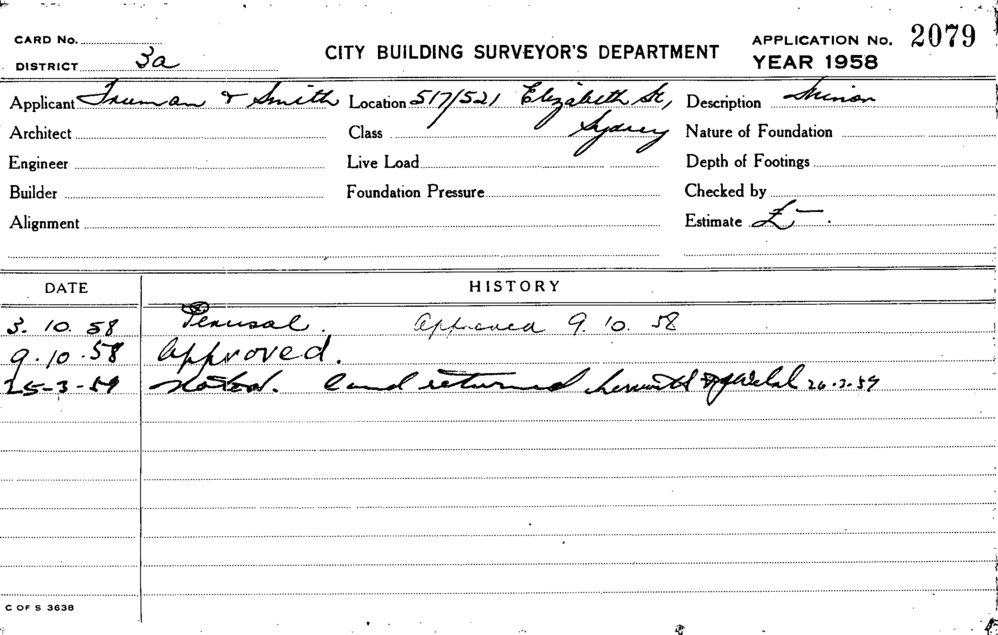 CARD No.
DISTRICT 3a
CITY BUILDING SURVEYOR'S DEPARTMENT
APPLICATION No. 2079
YEAR 1958
Applicant Truman & Smith Location 517/521 Elizabeth St, Description Minor
Architect Class Sydney Nature of Foundation
Engineer Live Load Depth of Footings
Builder Foundation Pressure Checked by
Alignment Estimate £—.
DATE HISTORY
3. 10. 58 Perusal. Approved 9. 10. 58
9. 10. 58 Approved.
25-3-59 Noted. Card returned herewith 26.3.59
C OF S 3638